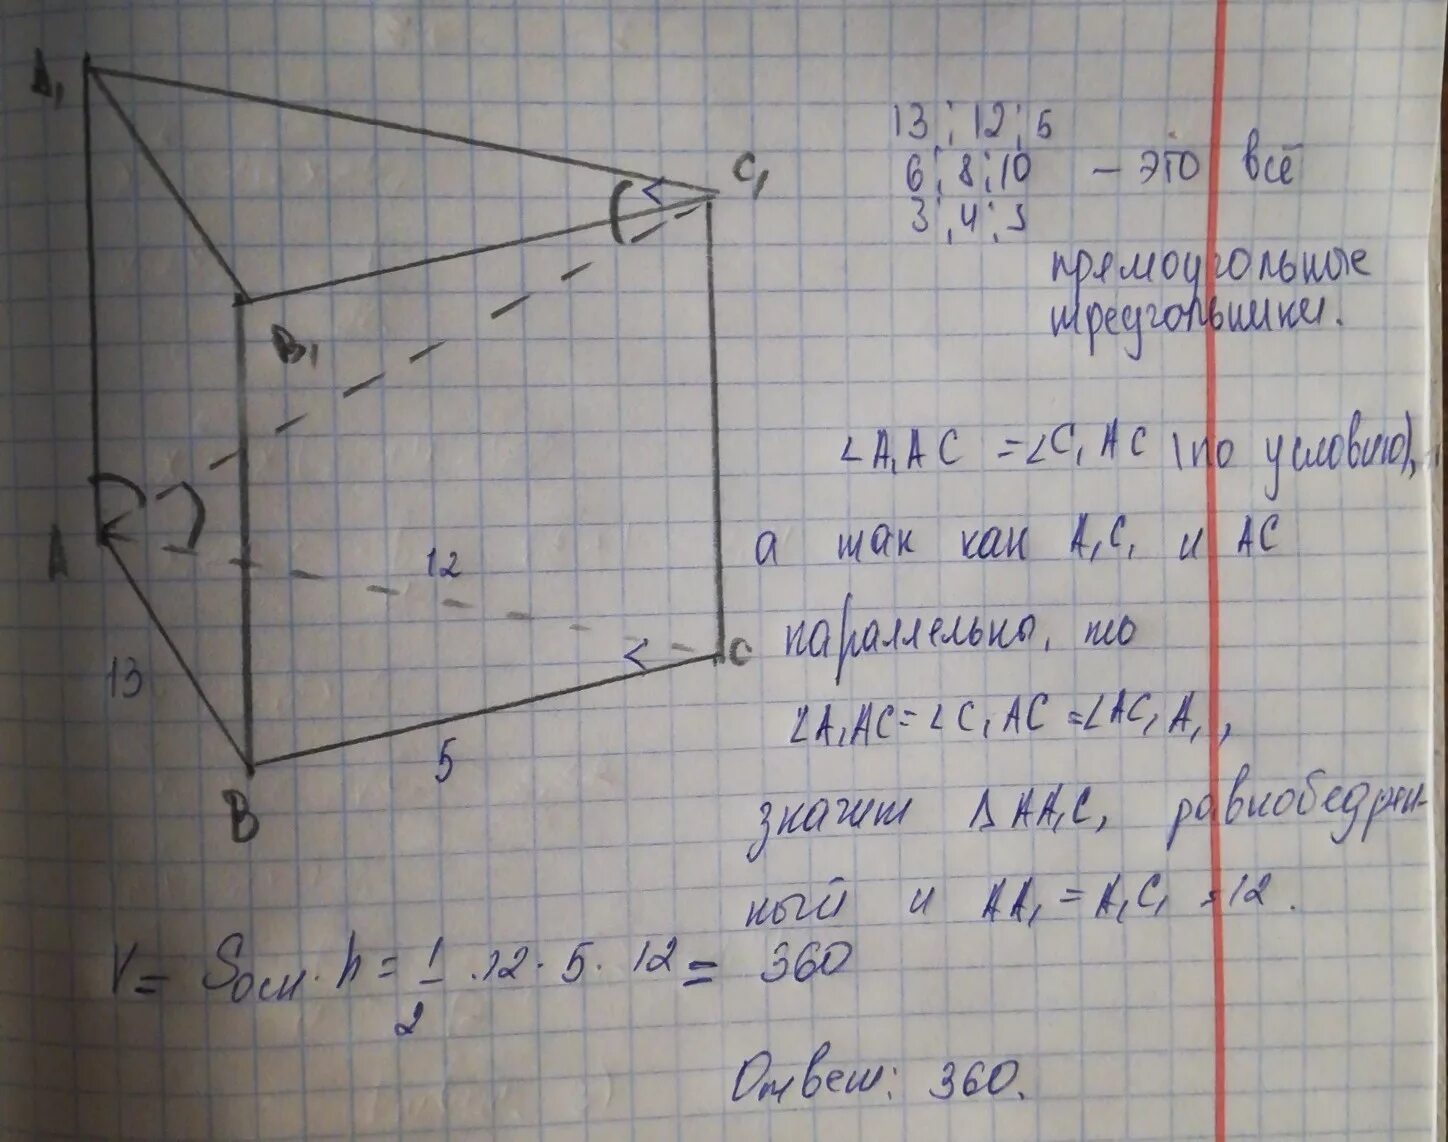 A₁
C₁
B₁
A
12
C
13
5
B
13; 12; 5
6; 8; 10 — это всё
3; 4; 5
прямоугольные
треугольники.
∠A₁AC = ∠C₁AC (по условию),
а так как A₁C₁ и AC
параллельны, то
∠A₁AC = ∠C₁AC = ∠AC₁A₁,
значит Δ AA₁C₁ равнобедрен-
ный и AA₁ = A₁C₁ = 12.
V = Sосн · h = 1/2 · 12 · 5 · 12 = 360
Ответ: 360.